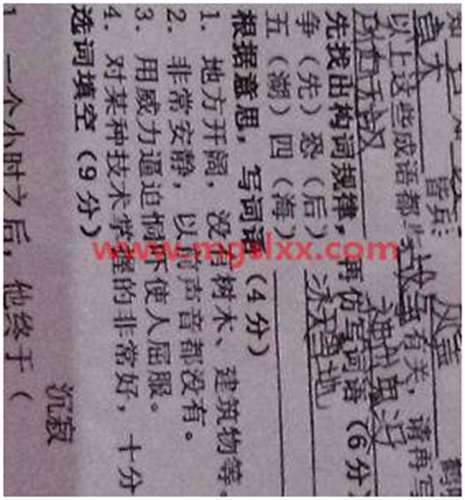 皆兵:
以上这些成语都与战争有关,请再写
先找出构词规律,再仿写词语(6分
争(先)恐(后) 神出鬼没
五(湖)四(海) 冰天雪地
根据意思,写词语(4分)
1. 地方开阔,没有树木、建筑物等。
2. 非常安静,声音都没有。
3. 用威力逼迫恫吓使人屈服。
4. 对某种技术掌握的非常好,十分
选词填空(9分)
沉寂
1 一个小时之后,他终于(
www.mgslxx.com